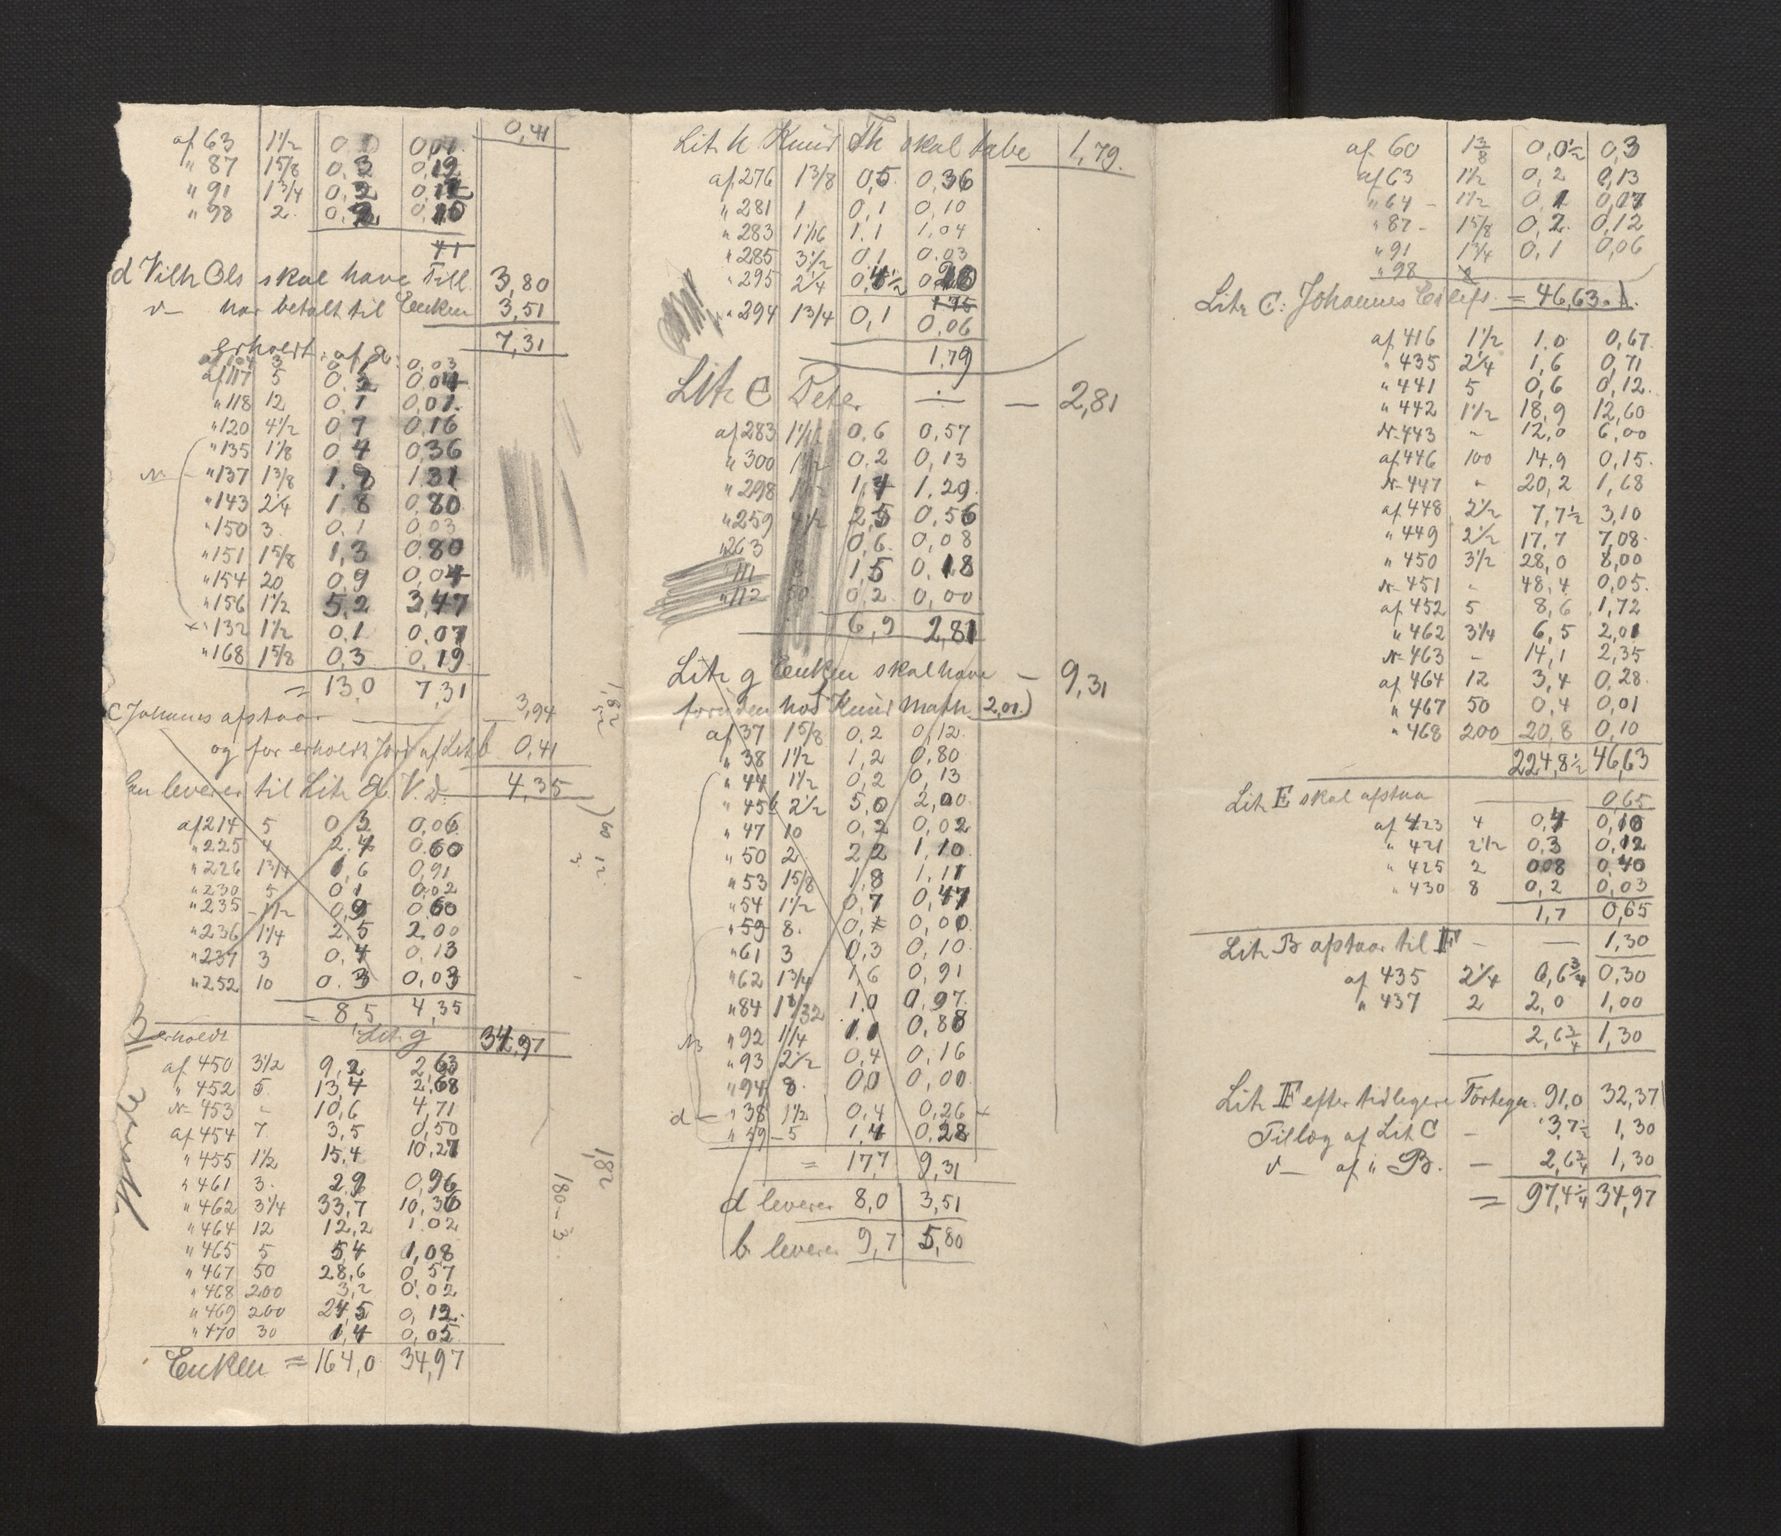 0,41
af 63 1 1/2 0,1 0,07
" 87 1 5/8 0,3 0,19
" 91 1 3/4 0,2 0,12
" 98 2 0,2 0,10
41
d Vilh Ols skal have Till 3,80
d— har betalt til Enken 3,51
erholdt af a: 7,31
af 104 3 0,1 0,03
af 117 5 0,2 0,04
" 118 12 0,1 0,01
" 120 4 1/2 0,7 0,16
" 135 1 1/8 0,4 0,36
N— " 137 1 3/8 1,8 1,31
" 143 2 1/4 1,8 0,80
" 150 3 0,1 0,03
" 151 1 5/8 1,3 0,80
" 154 20 0,9 0,04
" 156 1 1/2 5,2 3,47
× " 132 1 1/2 0,1 0,07
" 168 1 5/8 0,3 0,19
= 13,0 7,31
C Johannes afstaar — 3,94
og for erholdt Jord af Lit b 0,41
leverer til Lit a. V. d. 4,35
af 214 5 0,3 0,06
" 225 4 2,4 0,60
" 226 1 3/4 1,6 0,91
" 230 5 0,1 0,02
" 235 1 1/2 0,9 0,60
" 236 1 1/4 2,5 2,00
" 237 3 0,4 0,13
" 252 10 0,3 0,03
= 8,5 4,35
B erholdt Lit. g 34,97
af 450 3 1/2 9,2 2,63
" 452 5 13,4 2,68
N— 453 - 10,6 4,71
af 454 7 3,5 0,50
" 455 1 1/2 15,4 10,27
" 461 3 2,9 0,96
" 462 3 1/4 33,7 10,36
" 464 12 12,2 1,02
" 465 5 5,4 1,08
" 467 50 28,6 0,57
" 468 200 3,2 0,02
" 469 200 24,5 0,12
" 470 30 1,4 0,05
Enken = 164,0 34,97
1,82
1,82
180 — 3
Lit h Knud Th skal tabe 1,79.
af 276 1 3/8 0,5 0,36
" 281 1 0,1 0,10
" 283 1 1/16 1,1 1,04
" 285 3 1/2 0,1 0,03
" 295 2 1/4 0,4 1/2
" 294 1 3/4 0,1 0,06
1,79
Lit C Peter — — 2,81
af 283 0,6 0,57
" 300 0,2 0,13
" 298 1,29
" 259 4 1/2 2,5 0,56
" 263 0,6 0,08
" 111 1,5 0,18
" 112 50 0,2 0,00
6,9 2,81
Lit g Enken skal have — 9,31
foruden hos Knud Math 2,01)
af 37 1 5/8 0,2 0,12
" 38 1 1/2 1,2 0,80
" 44 1 1/2 0,2 0,13
" 45b 2 1/2 5,0 2,00
" 47 10 0,2 0,02
" 50 2 2,2 1,10
" 53 1 5/8 1,8 1,11
" 54 1 1/2 0,7 0,47
" 59 8 0, 0,00
" 61 3 0,3 0,10
" 62 1 3/4 1,6 0,91
" 84 1,0 0,97
" 92 1 1/4 1,1 0,88
" 93 2 1/2 0,4 0,16
" 94 8 0,0 0,00
d — " 38 1 1/2 0,4 0,26 +
" 59 — 5 1,4 0,28
= 17,7 9,31
d leverer 8,0 3,51
b leverer 9,7 5,80
af 60 1 3/8 0,0 1/2 0,3
af 63 1 1/2 0,2 0,13
" 64 - 1 1/2 0,1 0,07
" 87 - 1 5/8 0,2 0,12
" 91 1 3/4 0,1 0,06
" 98 2
Litr C: Johannes = 46,63
af 416 1 1/2 1,0 0,67
" 435 2 1/4 1,6 0,71
" 441 5 0,6 0,12
" 442 1 1/2 18,9 12,60
N— 443 - 12,0 6,00
af 446 100 14,9 0,15
N— 447 - 20,2 1,68
af 448 2 1/2 7,7 1/2 3,10
" 449 2 1/2 17,7 7,08
" 450 3 1/2 28,0 8,00
N— 451 - 48,4 0,05
af 452 5 8,6 1,72
" 462 3 1/4 6,5 2,01
N— 463 - 14,1 2,35
af 464 12 3,4 0,28
" 467 50 0,4 0,01
" 468 200 20,8 0,10
224,8 1/2 46,63
Lit E skal afstaa — 0,65
af 423 4 0,4 0,10
" 421 2 1/2 0,3 0,12
" 425 2 0,8 0,40
" 430 8 0,2 0,03
1,7 0,65
Lit B afstaar til F — — 1,30
af 435 2 1/4 0,6 3/4 0,30
" 437 2 2,0 1,00
2,6 3/4 1,30
Lit F efter tidligere Fortegn. 91,0 32,37
Tillæg af Lit C — 3,7 1/2 1,30
d— af " B. — 2,6 3/4 1,30
= 97,4 1/4 34,97